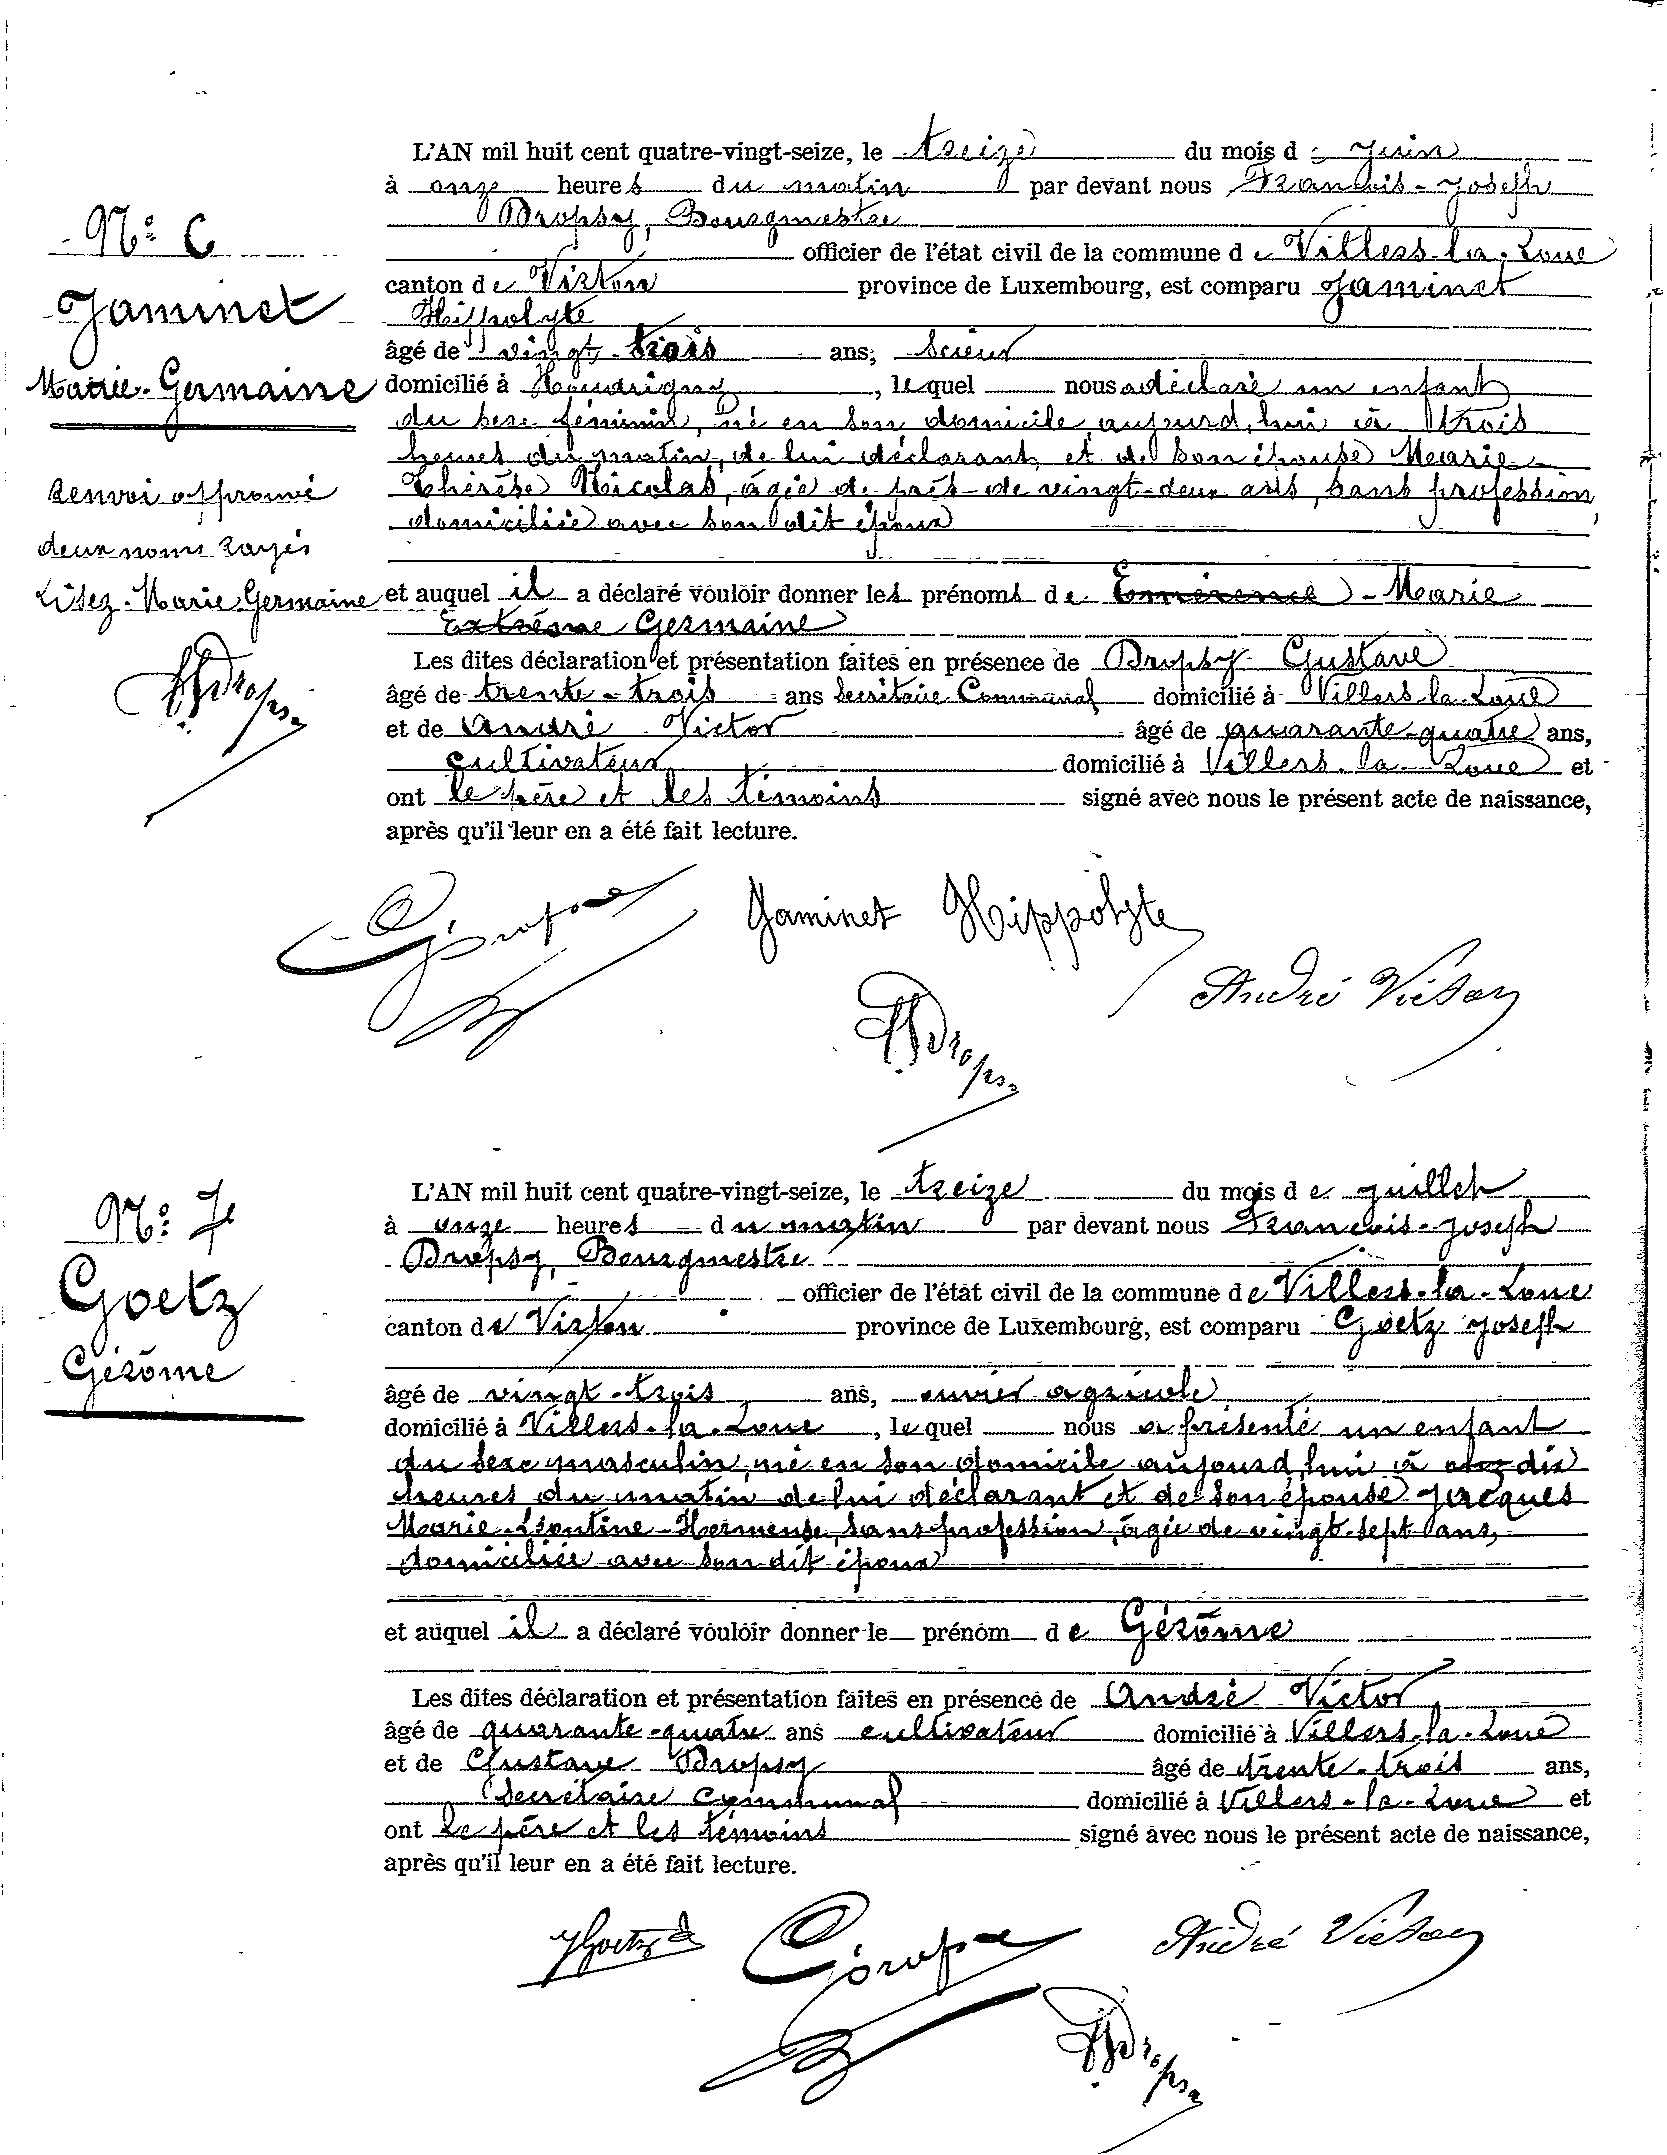 N° 6
Jaminet
Marie-Germaine
Renvoi approuvé
deux noms rayés
Lisez-Marie Germaine
FJDropsy
L'AN mil huit cent quatre-vingt-seize, le treize du mois de Juin
à onze heures du matin par devant nous François-Joseph
Dropsy, Bourgmestre
officier de l'état civil de la commune de Villers-la-Loue
canton de Virton province de Luxembourg, est comparu Jaminet
Hippolyte
âgé de vingt-trois ans, scieur
domicilié à Houdrigny, lequel nous a déclaré un enfant
du sexe féminin, né en son domicile aujourd'hui à trois
heures du matin, de lui déclarant et de son épouse Marie
Thérèse Nicolas, agée de près-de vingt-deux ans, sans profession,
domiciliée avec son dit époux
et auquel il a déclaré vouloir donner les prénoms de Emérence - Marie
Extrême Germaine
Les dites déclaration et présentation faites en présence de Dropsy Gustave
âgé de trente-trois ans Secrétaire Communal domicilié à Villers-la-Loue
et de André Victor âgé de quarante-quatre ans,
cultivateur domicilié à Villers-la-Loue et
ont le père et les témoins signé avec nous le présent acte de naissance,
après qu'il leur en a été fait lecture.
GDropsy Jaminet Hippolyte
FJDropsy André Victor
N° 7
Goetz
Gérôme
L'AN mil huit cent quatre-vingt-seize, le treize du mois de Juillet
à onze heures du matin par devant nous François-Joseph
Dropsy, Bourgmestre
officier de l'état civil de la commune de Villers-la-Loue
canton de Virton province de Luxembourg, est comparu Goetz Joseph
âgé de vingt-trois ans, ouvrier agricole
domicilié à Villers-la-Loue, lequel nous a présenté un enfant
du sexe masculin, né en son domicile aujourd'hui à dix
heures du matin de lui déclarant et de son épouse Jacques
Marie-Léontine-Hermense, sans profession, âgée de vingt-sept ans,
domiciliée avec son dit époux
et auquel il a déclaré vouloir donner le prénom de Gérôme
Les dites déclaration et présentation faites en présence de André Victor
âgé de quarante-quatre ans cultivateur domicilié à Villers-la-Loue
et de Gustave Dropsy âgé de trente-trois ans,
Secrétaire Communal domicilié à Villers-la-Loue et
ont le père et les témoins signé avec nous le présent acte de naissance,
après qu'il leur en a été fait lecture.
JGoetz GDropsy André Victor
FJDropsy